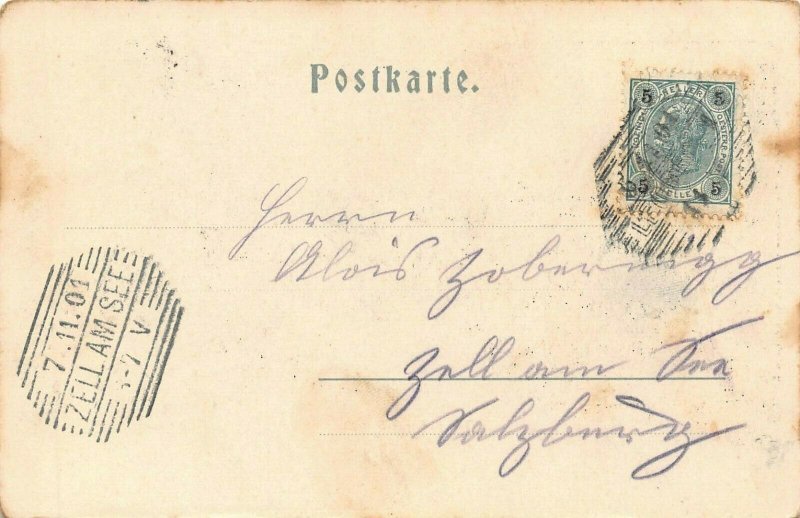 Postkarte.
5 5
5 5
Herrn
Alois Zobernigg
7.11.01
ZELL AM SEE
-7 V
Zell am See
Salzburg